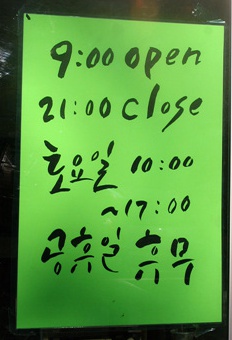 9:00 open
21:00 close
토요일 10:00
~17:00
공휴일 휴무